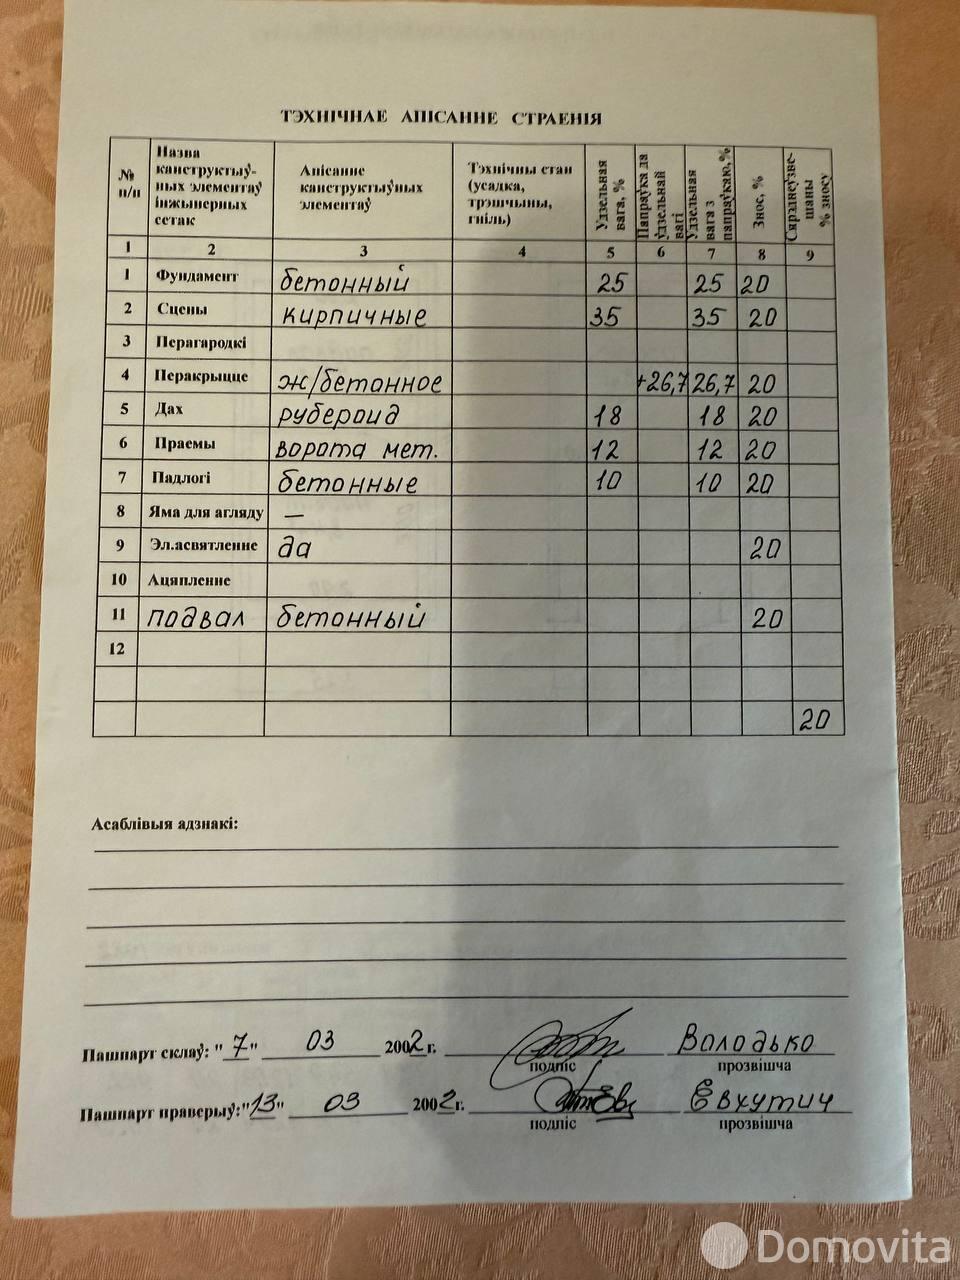 ТЭХНІЧНАЕ АПІСАННЕ СТРАЕНІЯ
№ п/п | Назва канструктыў-ных элементаў інжынерных сетак | Апісанне канструктыўных элементаў | Тэхнічны стан (усадка, трэшчыны, гніль) | Удзельная вага, % | Папраўка да ўдзельнай вагі | Удзельная вага з папраўкаю, % | Знос, % | Сярэднеўзве-шаны % зносу
1 2 3 4 5 6 7 8 9
1 Фундамент бетонный 25 25 20
2 Сцены кирпичные 35 35 20
3 Перагародкі
4 Перакрыцце ж/бетонное +26,7 26,7 20
5 Дах рубероид 18 18 20
6 Праемы ворота мет. 12 12 20
7 Падлогі бетонные 10 10 20
8 Яма для агляду —
9 Эл.асвятленне да 20
10 Ацяпленне
11 подвал бетонный 20
12
20
Асаблівыя адзнакі:
Пашпарт склаў: "7" 03 2002г. Володько
подпіс прозвішча
Пашпарт праверыў:"13" 03 2002г. Евхутич
подпіс прозвішча
Domovita